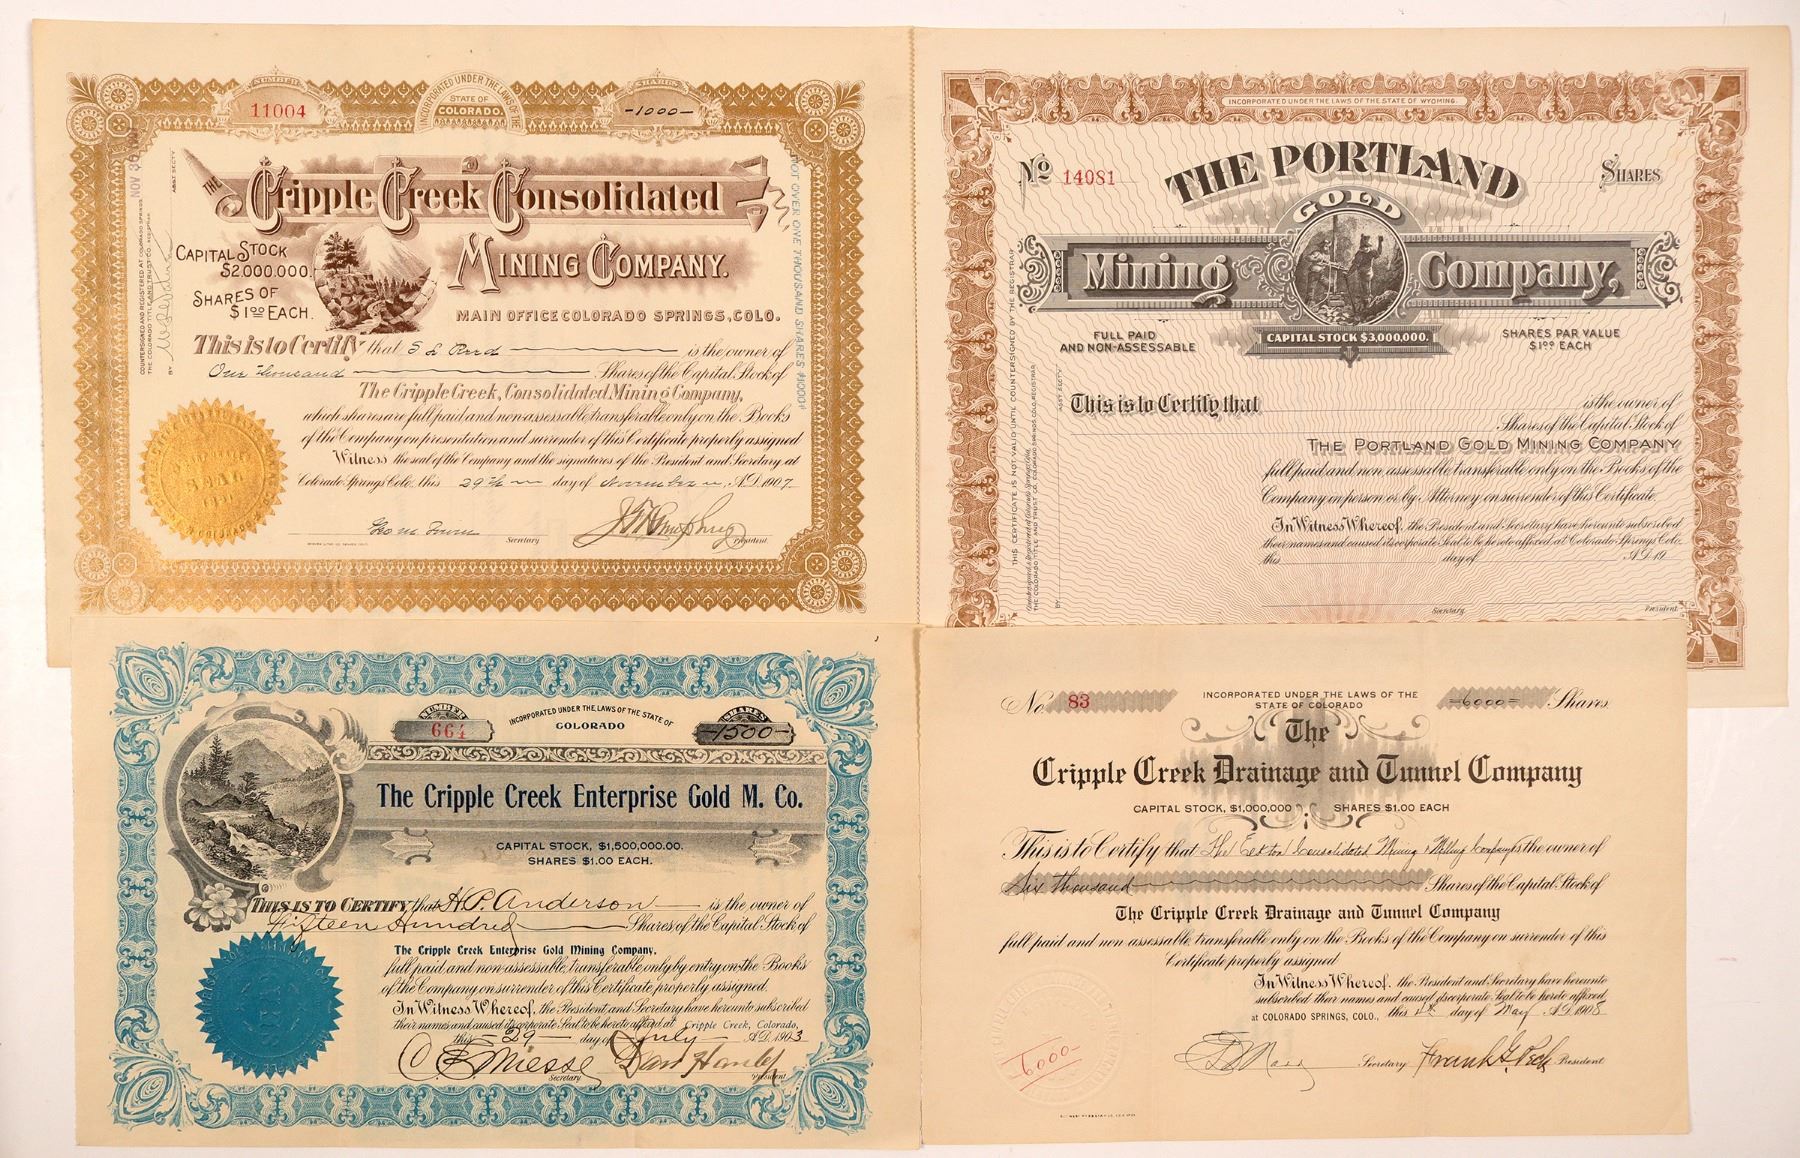 NUMBER
11004
INCORPORATED UNDER THE LAWS OF THE
STATE OF
COLORADO.
SHARES
-1000-
THE Cripple Creek Consolidated
MINING COMPANY.
CAPITAL STOCK
$2,000,000.
SHARES OF
$1.00 EACH.
MAIN OFFICE COLORADO SPRINGS, COLO.
This is to Certify that S L is the owner of
One thousand Shares of the Capital Stock of
The Cripple Creek, Consolidated Mining Company,
which shares are full paid and non assessable transferable only on the Books
of the Company on presentation and surrender of this Certificate properly assigned
Witness the seal of the Company and the signatures of the President and Secretary at
Colorado Springs Colo. this 29th day of November A.D. 1907.
Secretary
President
NOV 30
ASST. SECTY
COUNTERSIGNED AND REGISTERED AT COLORADO SPRINGS,
THE COLORADO TITLE AND TRUST CO. REGISTRAR
BY
NOT OVER ONE THOUSAND SHARES $1000
SEAL
INCORPORATED UNDER THE LAWS OF THE STATE OF WYOMING.
No 14081
SHARES
THE PORTLAND
GOLD
Mining Company,
FULL PAID
AND NON-ASSESSABLE
CAPITAL STOCK $3,000,000.
SHARES PAR VALUE
$1.00 EACH
This is to Certify that is the owner of
Shares of the Capital Stock of
THE PORTLAND GOLD MINING COMPANY
full paid and non assessable transferable only on the Books of the
Company in person or by Attorney on surrender of this Certificate.
In Witness Whereof, the President and Secretary have hereunto subscribed
their names and caused its corporate Seal to be hereto affixed at Colorado Springs Colo.
this day of A.D. 19
Secretary
President
THIS CERTIFICATE IS NOT VALID UNTIL COUNTERSIGNED BY THE REGISTRAR
Countersigned & Registered at Colorado Springs
THE COLORADO TITLE AND TRUST CO. COLORADO SPRINGS, COLO. REGISTRAR
BY
ASST SECTY
NUMBER
664
INCORPORATED UNDER THE LAWS OF THE STATE OF
COLORADO
SHARES
-1500-
The Cripple Creek Enterprise Gold M. Co.
CAPITAL STOCK, $1,500,000.00.
SHARES $1.00 EACH.
THIS IS TO CERTIFY that H.P. Anderson is the owner of
Fifteen Hundred Shares of the Capital Stock of
The Cripple Creek Enterprise Gold Mining Company,
full paid and non-assessable, transferable only by entry on the Books
of the Company on surrender of this Certificate, properly assigned.
In Witness Whereof, the President and Secretary have hereunto subscribed
their names and caused its corporate Seal to be hereto affixed at Cripple Creek, Colorado,
this -29- day of July A.D. 1903
Miesse
Secretary
Dan Hanley
President
No. 83
INCORPORATED UNDER THE LAWS OF THE
STATE OF COLORADO
-6000- Shares.
The
Cripple Creek Drainage and Tunnel Company
CAPITAL STOCK, $1,000,000 SHARES $1.00 EACH
This is to Certify that The Consolidated Mining & Milling Company is the owner of
Six thousand Shares of the Capital Stock of
The Cripple Creek Drainage and Tunnel Company
full paid and non assessable transferable only on the Books of the Company on surrender of this
Certificate properly assigned
In Witness Whereof, the President and Secretary have hereunto
subscribed their names and caused its corporate Seal to be hereto affixed
at COLORADO SPRINGS, COLO., this 4th day of May A.D. 1908
6000-
Secretary
Frank G. Peck President